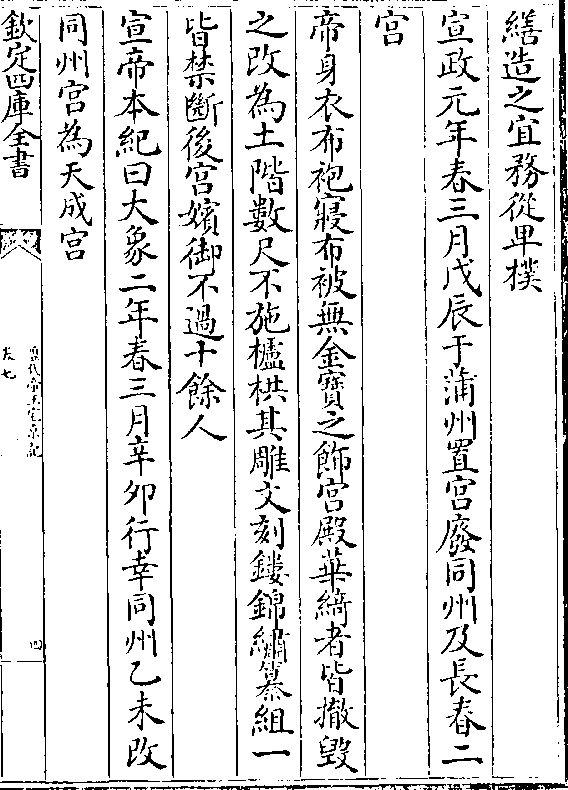 繕造之宜務從卑樸
宣政元年春三月戊辰于蒲州置宫廢同州及長春二
宫
帝身衣布袍寢布被無金寶之飾宫殿華綺者皆撤毁
之改為土階數尺不施櫨栱其雕文刻鏤錦繡纂組一
皆禁斷後宫嬪御不過十餘人
宣帝本紀曰大象二年春三月辛夘行幸同州乙未改
同州宫為天成宫
欽定四庫全書
歴代帝王宅京記
卷七
四